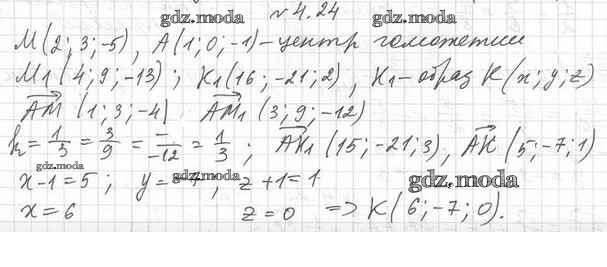 gdz.moda
№ 4.24
M(2;3;-5), A(1;0;-1) - центр гомотетии
M₁(4;9;-13); K₁(16;-21;2), K₁ - образ K(x;y;z)
AM (1;3;-4) AM₁ (3;9;-12)
k = 1/3 = 3/9 = -/-12 = 1/3; AK₁ (15;-21;3), AK (5;-7;1)
gdz.moda
x-1=5; y=-7, z+1=1
gdz.moda
gdz.moda
x=6 z=0 => K(6;-7;0).